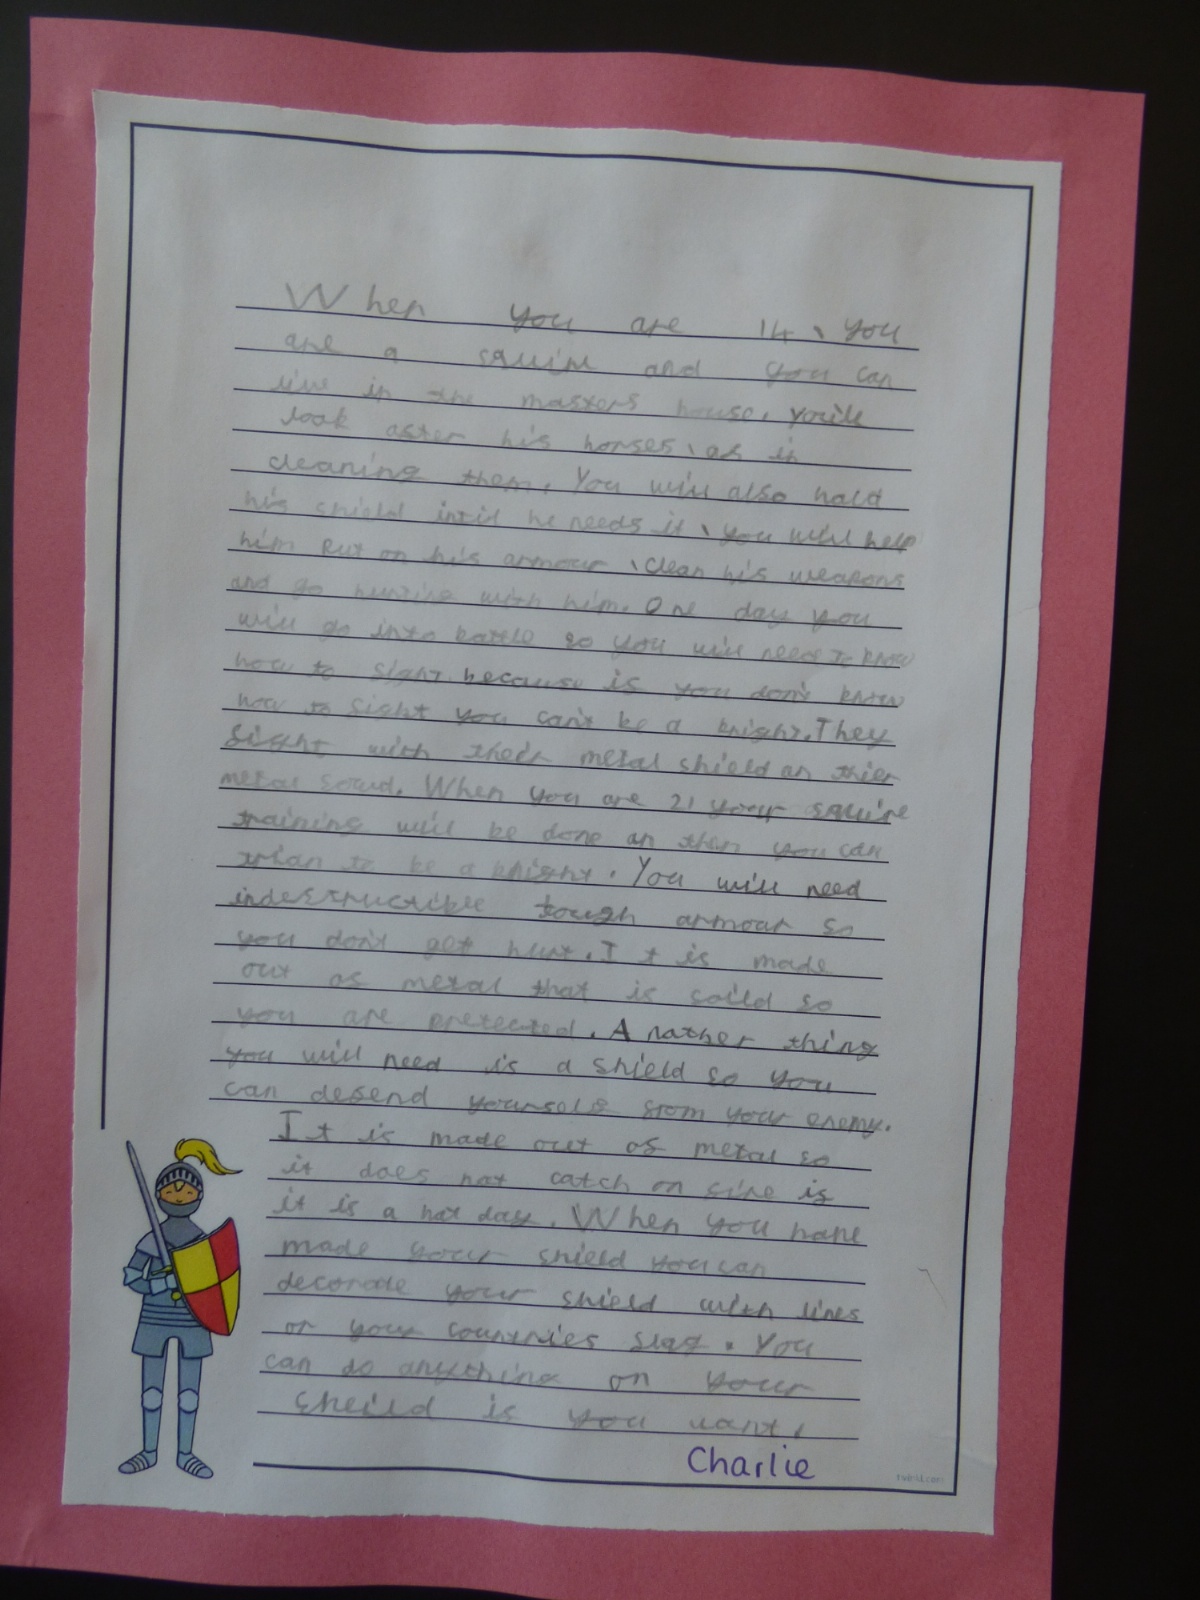 When you are 14, you
are a squire and you can
live in the masters house. You'll
look after his horses, as in
cleaning them. You will also hold
his shield intil he needs it, you will help
him put on his armour, clean his weapons
and go hunting with him. One day you
will go into battle so you will need to know
how to fight because if you don't know
how to fight you can't be a knight. They
fight with their metal shield an thier
metal soud. When you are 21 your squire
training will be done an then you can
trian to be a knight. You will need
indestructible tough armour so
you don't get hurt. It is made
out of metal that is soild so
you are pretected. A nather thing
you will need is a shield so you
can defend yourself from your enemy.
It is made out of metal so
it does not catch on fire if
it is a hot day. When you have
made your shield you can
decorade your shield with lines
or your countries flag. You
can do anything on your
sheild if you want.
Charlie